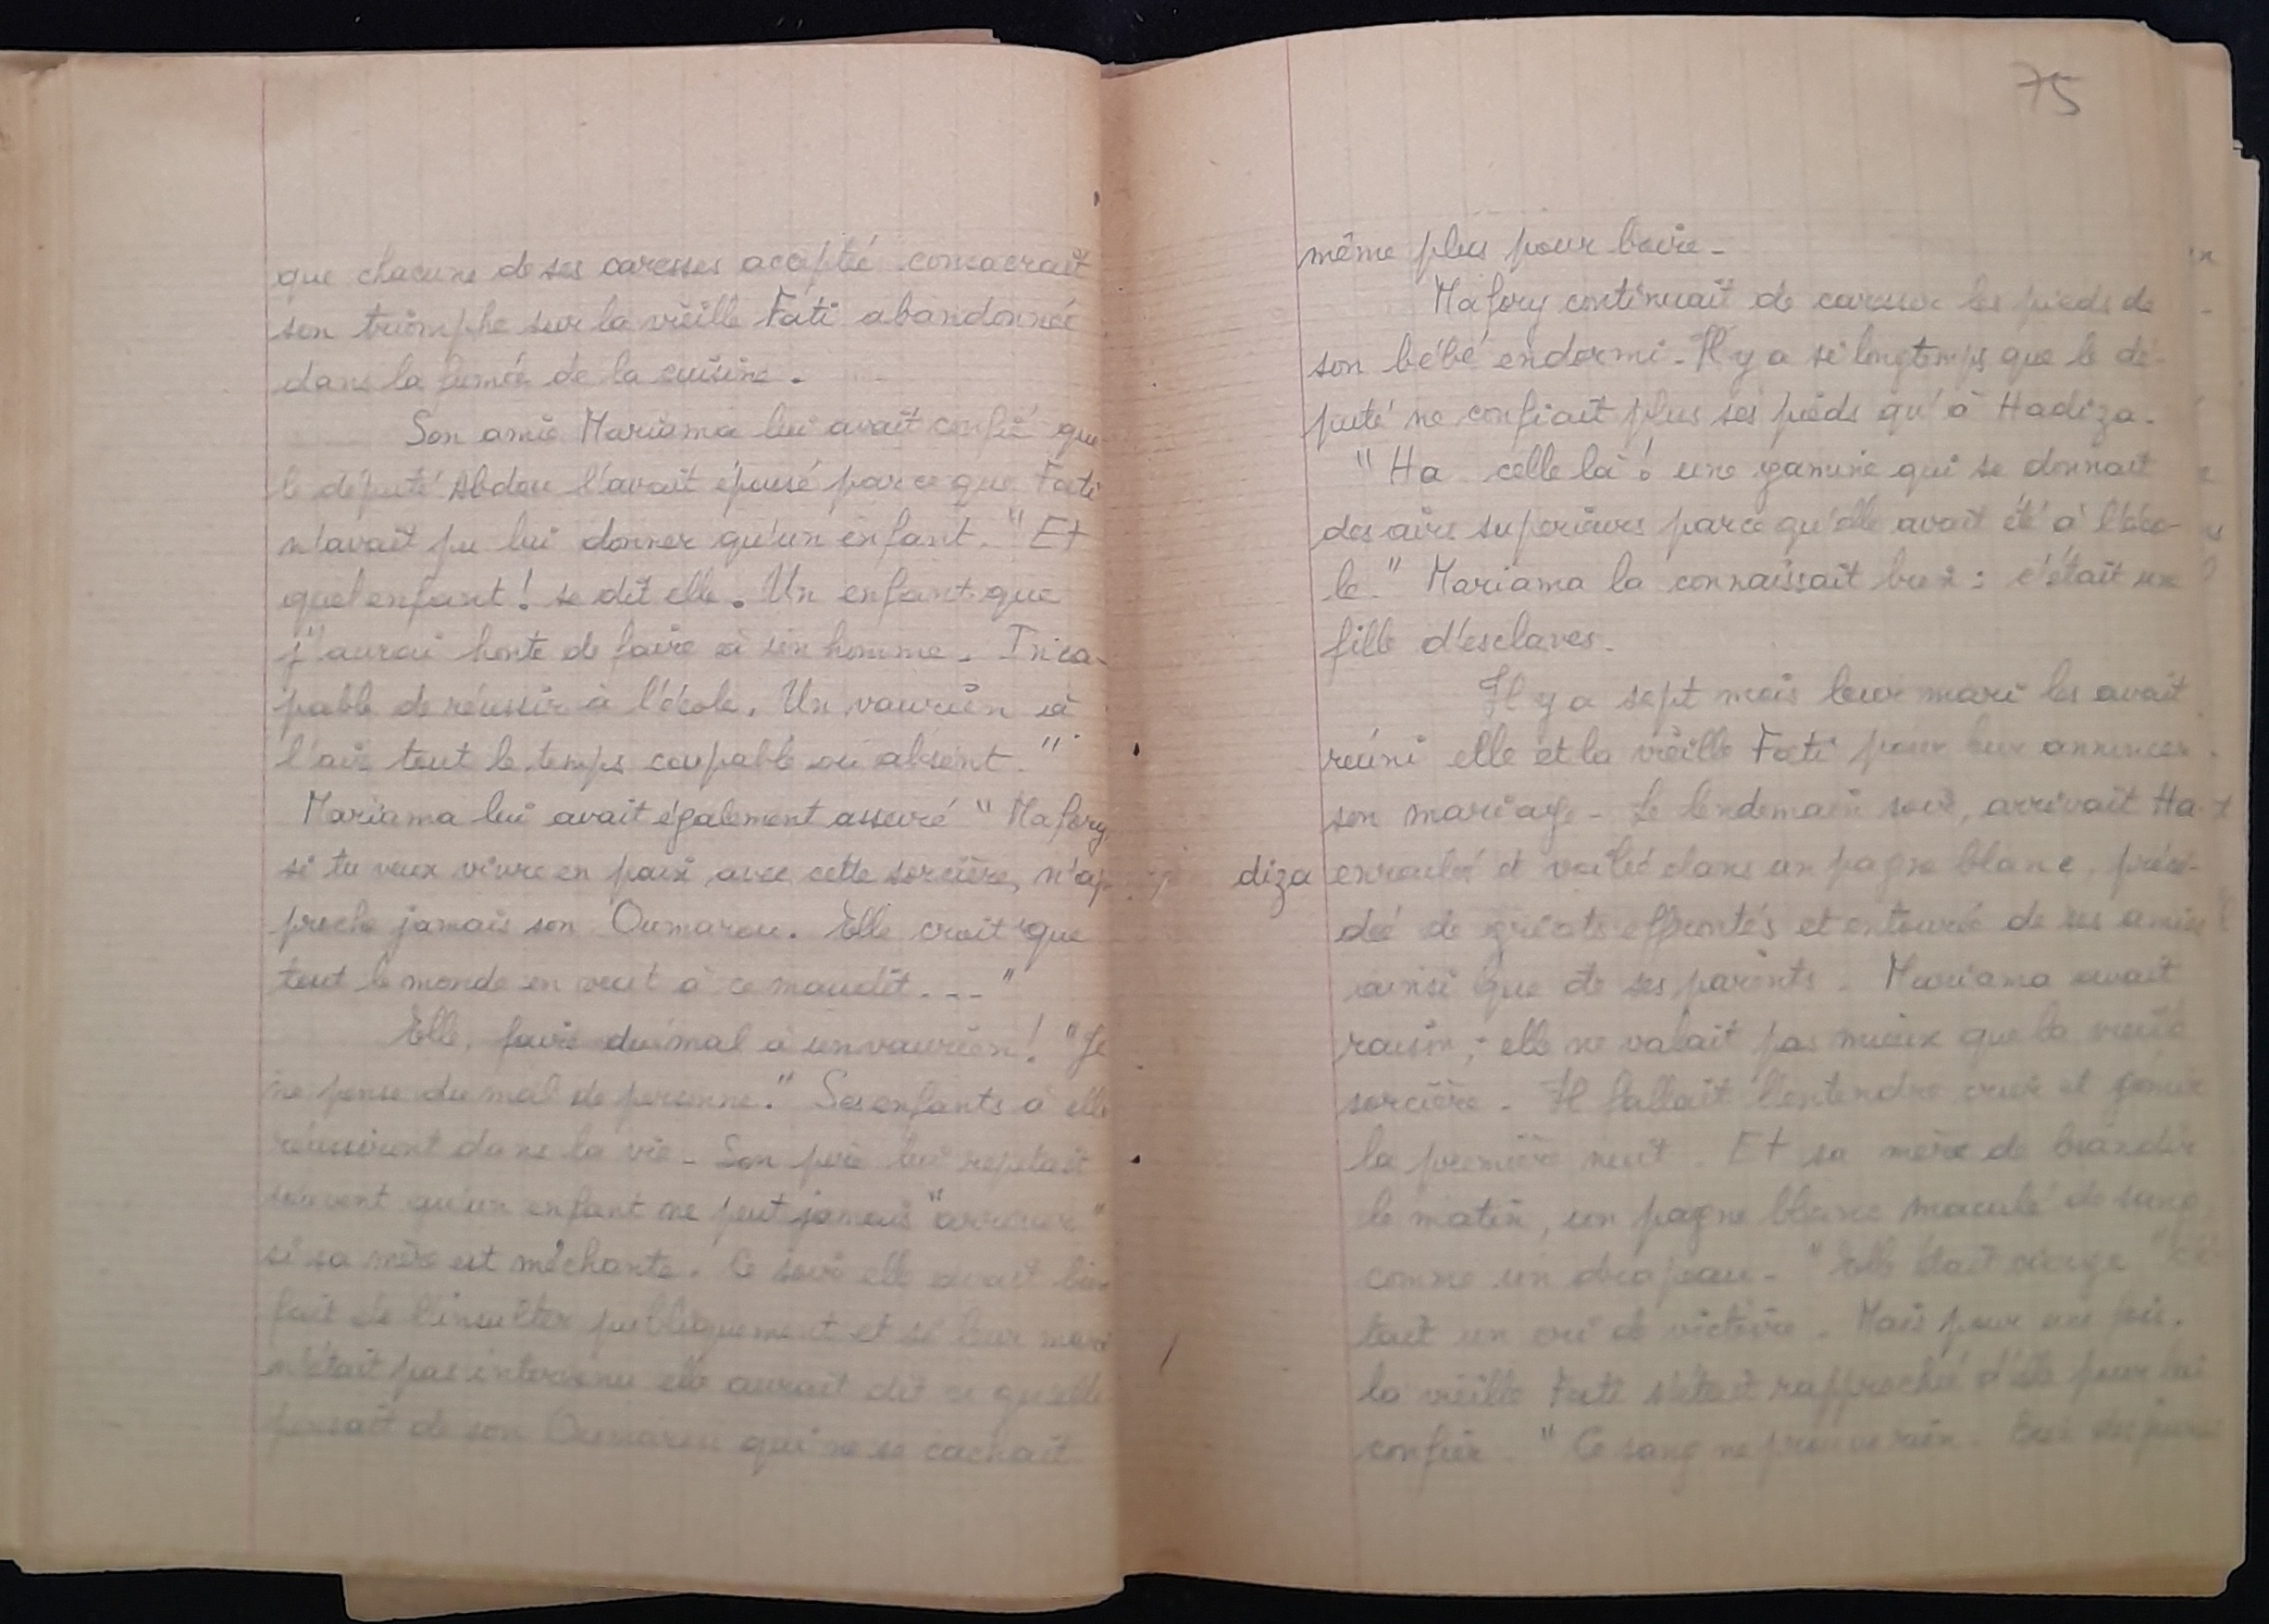 que chacune de ses caresses acceptée consacrait
son triomphe sur la vieille Fati abandonnée
dans la fumée de la cuisine.
Son amie Mariama lui avait confié que
le député Abdou l'avait épousé parce que Fati
n'avait pu lui donner qu'un enfant. "Et
quel enfant! se dit elle. Un enfant que
j'aurai honte de faire à un homme. Inca-
pable de réussir à l'école. Un vaurien à
l'air tout le temps coupable ou absent."
Mariama lui avait également assuré "Mafory,
si tu veux vivre en paix avec cette sorcière, n'ap-
proche jamais son Oumarou. Elle croit que
tout le monde en veut à ce maudit..."
Elle, faire du mal à un vaurien! "Je
ne pense du mal de personne." Ses enfants à elle
réussiront dans la vie - Son père lui repetait
souvent qu'un enfant ne peut jamais "arriver"
si sa mère est méchante. Ce soir elle avait bien
fait de l'insulter publiquement et si leur mari
n'était pas intervenu elle aurait dit ce qu'elle
pensait de son Oumarou qui ne se cachait
75
même plus pour boire -
Mafory continuait de caresser les pieds de
son bébé endormi - Il y a si longtemps que le dé-
puté ne confiait plus ses pieds qu'à Hadiza.
"Ha celle là! une gamine qui se donnait
des airs superieurs parce qu'elle avait été à l'éco-
le." Mariama la connaissait bien: c'était une
fille d'esclaves.
Il y a sept mois leur mari les avait
réuni elle et la vieille Fati pour leur annoncer
son mariage - Le lendemain soir, arrivait Ha-
diza enroulée et voilée dans un pagne blanc, précé-
dée de griots effrontés et entourée de ses amies
ainsi que de ses parents. Mariama avait
raison; elle ne valait pas mieux que la vieille
sorcière - Il fallait l'entendre crier et gémir
la première nuit. Et sa mère de brandir
le matin, un pagne blanc maculé de sang
comme un drapeau - "Elle était vierge" C'é-
tait un cri de victoire. Mais pour une fois,
la vieille Fati s'était rapprochée d'elle pour lui
confier "Ce sang ne prouve rien.